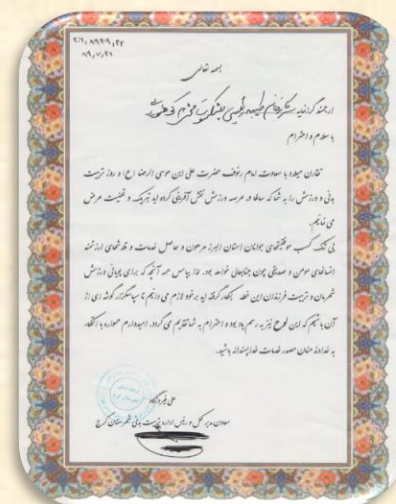 ۸۹۴۹٫۲۲
۸۹٫۷٫۲۱
بسمه تعالی
ارجمند گرامی
با سلام و احترام
تقارن میلاد با سعادت امام رئوف حضرت علی ابن موسی الرضا (ع) و روز تربیت
بدنی و ورزش را به شما که سالها در عرصه ورزش نقش آفرینی کرده اید تبریک و تهنیت عرض
می نمائیم.
بی شک کسب موفقیتهای جوانان استان البرز مرهون و حاصل خدمات و تلاشهای ارزشمند
انسانهای مومن و صدیقی چون جنابعالی خواهد بود. لذا بپاس همه آنچه که برای پویائی ورزش
شهرمان و تربیت فرزندان این خطه بکار گرفته اید بر خود لازم می دانیم تا سپاسگزار گوشه ای از
آن باشیم که این لوح نیز به رسم یاد بود و احترام به شما تقدیم می گردد. امیدوارم همواره با اتکاء
به خداوند منان مصدر خدمات خداپسندانه باشید.
علی
معاون مدیر کل و رئیس اداره تربیت بدنی شهرستان کرج